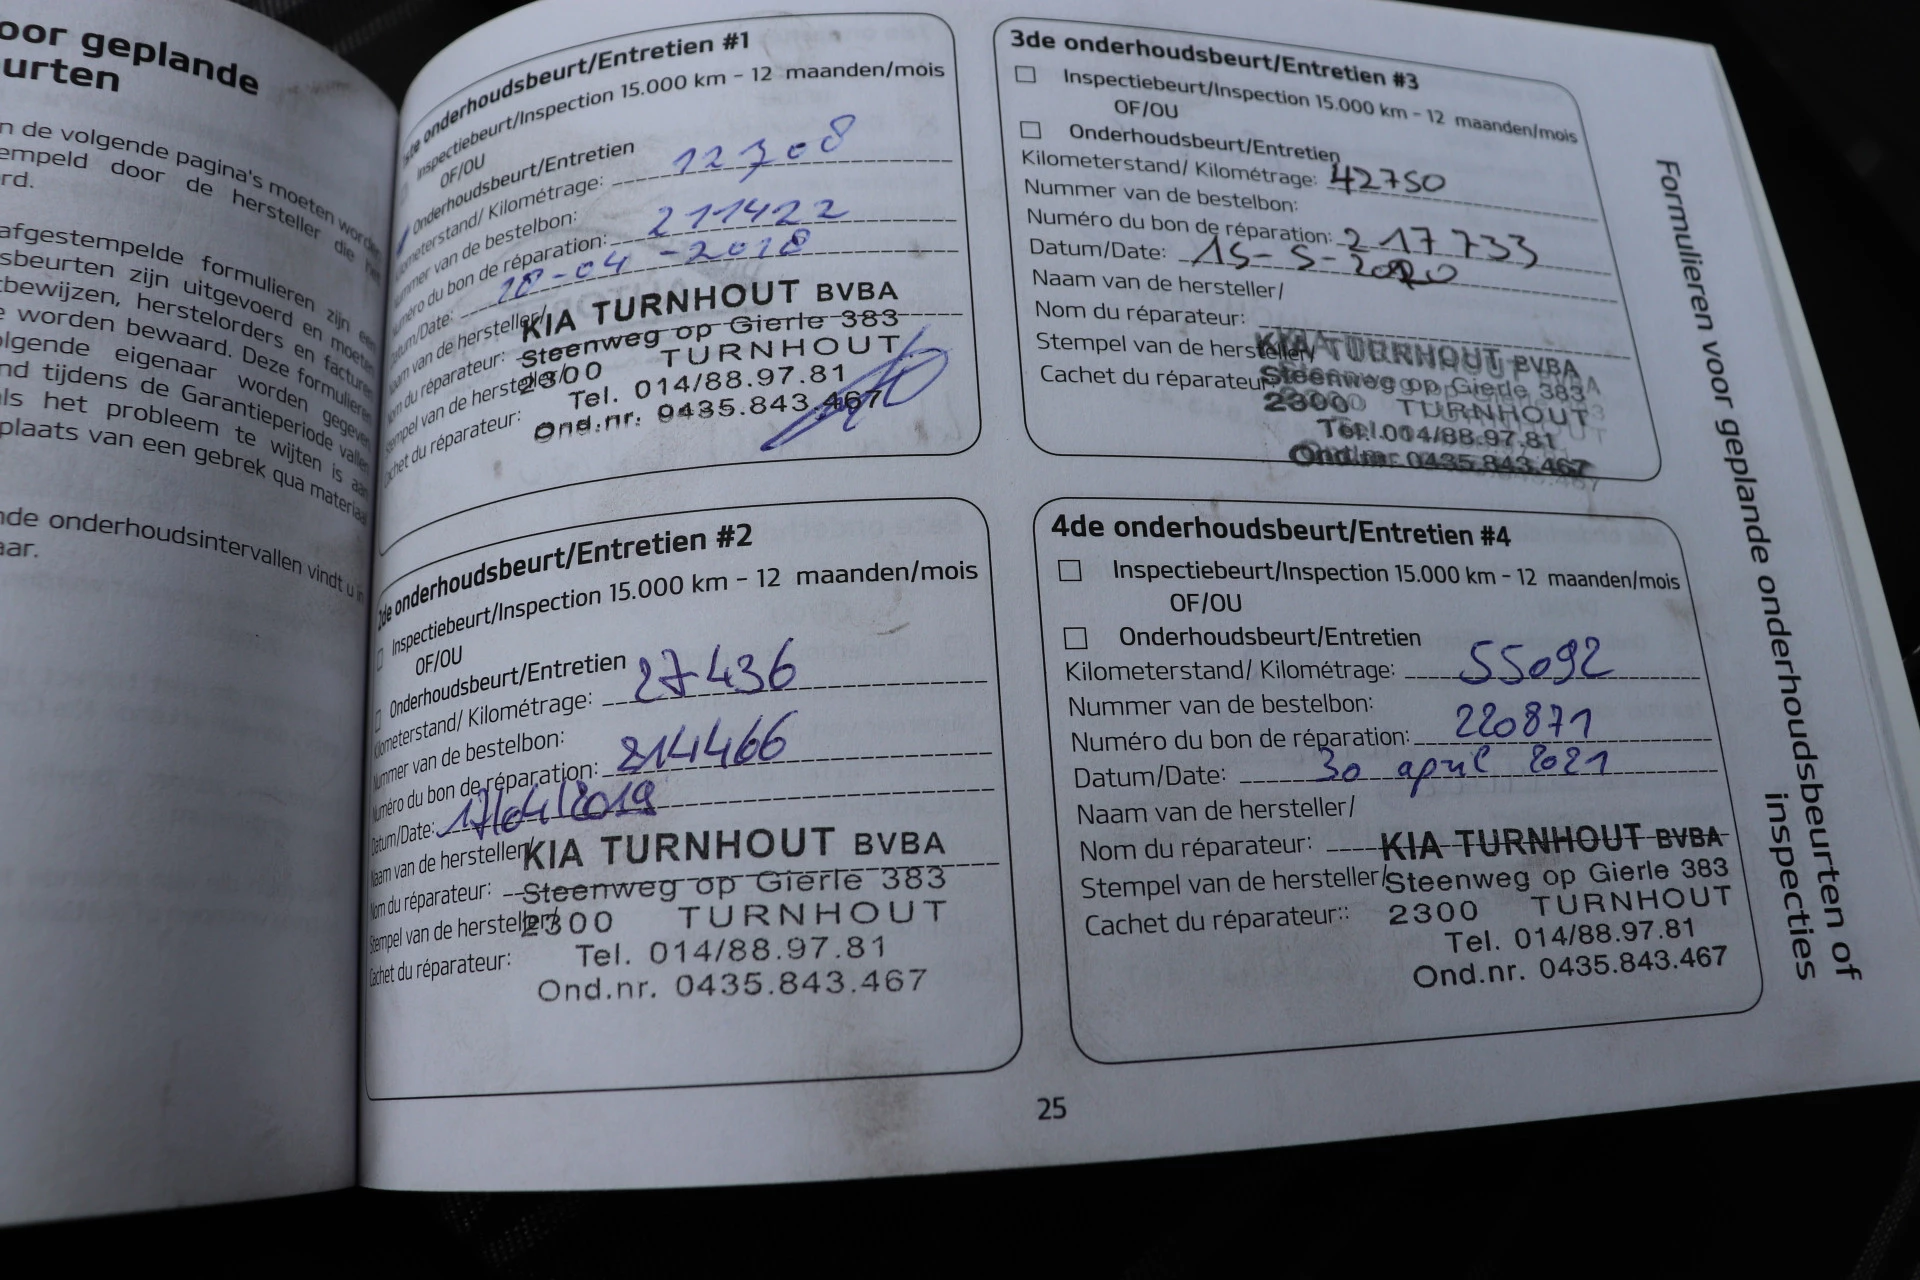 oor geplande
urten
n de volgende pagina's moeten worden
empeld door de hersteller die het
rd.
afgestempelde formulieren zijn een
sbeurten zijn uitgevoerd en moeten
tbewijzen, herstelorders en facturen
e worden bewaard. Deze formulieren
olgende eigenaar worden gegeven
nd tijdens de Garantieperiode vallen
als het probleem te wijten is aan
plaats van een gebrek qua materiaal
nde onderhoudsintervallen vindt u in
aar.
onderhoudsbeurt/Entretien #1
Inspectiebeurt/Inspection 15.000 km - 12 maanden/mois
OF/OU
Onderhoudsbeurt/Entretien
Kilometerstand/ Kilométrage: 12708
Nummer van de bestelbon:
Numéro du bon de réparation: 211422
Datum/Date: -04-2018
Naam van de hersteller/
Nom du réparateur:
Stempel van de hersteller/
Cachet du réparateur:
KIA TURNHOUT BVBA
Steenweg op Gierle 383
2300 TURNHOUT
Tel. 014/88.97.81
Ond.nr. 0435.843.467
2de onderhoudsbeurt/Entretien #2
Inspectiebeurt/Inspection 15.000 km - 12 maanden/mois
OF/OU
Onderhoudsbeurt/Entretien
Kilometerstand/ Kilométrage: 27436
Nummer van de bestelbon:
Numéro du bon de réparation: 214466
Datum/Date: 17/04/2019
Naam van de hersteller/
Nom du réparateur:
Stempel van de hersteller/
Cachet du réparateur:
KIA TURNHOUT BVBA
Steenweg op Gierle 383
2300 TURNHOUT
Tel. 014/88.97.81
Ond.nr. 0435.843.467
3de onderhoudsbeurt/Entretien #3
Inspectiebeurt/Inspection 15.000 km - 12 maanden/mois
OF/OU
Onderhoudsbeurt/Entretien
Kilometerstand/ Kilométrage: 42750
Nummer van de bestelbon:
Numéro du bon de réparation: 217733
Datum/Date: 15-5-2020
Naam van de hersteller/
Nom du réparateur:
Stempel van de hersteller/
Cachet du réparateur:
KIA TURNHOUT BVBA
Steenweg op Gierle 383
2300 TURNHOUT
Tel. 014/88.97.81
Ond.nr. 0435.843.467
4de onderhoudsbeurt/Entretien #4
Inspectiebeurt/Inspection 15.000 km - 12 maanden/mois
OF/OU
Onderhoudsbeurt/Entretien
Kilometerstand/ Kilométrage: 55092
Nummer van de bestelbon:
Numéro du bon de réparation: 220871
Datum/Date: 30 april 2021
Naam van de hersteller/
Nom du réparateur:
Stempel van de hersteller/
Cachet du réparateur::
KIA TURNHOUT BVBA
Steenweg op Gierle 383
2300 TURNHOUT
Tel. 014/88.97.81
Ond.nr. 0435.843.467
Formulieren voor geplande onderhoudsbeurten of
inspecties
25